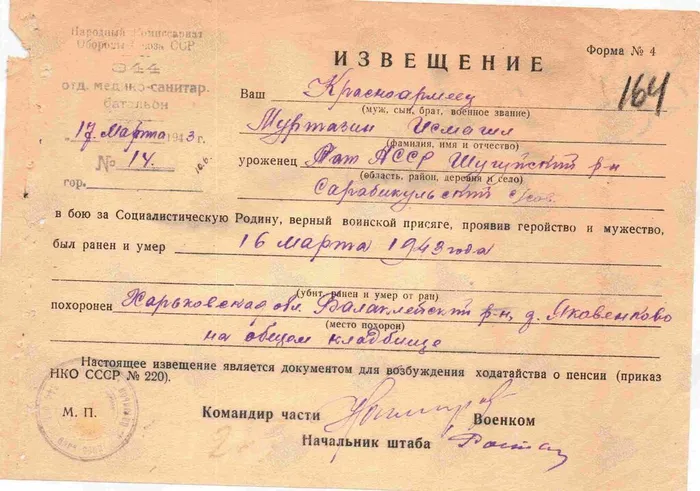 Народный Комиссариат
Обороны Союза ССР
344
отд. медико-санитар.
батальон
17 марта 1943 г.
№ 14.
гор.
Форма № 4
ИЗВЕЩЕНИЕ
164
Ваш Красноармеец
(муж, сын, брат, военное звание)
Муртазин Исмагил
(фамилия, имя и отчество)
уроженец Тат АССР Шугуйский р-н
(область, район, деревня и село)
Сарабикульский
в бою за Социалистическую Родину, верный воинской присяге, проявив геройство и мужество,
был ранен и умер 16 марта 1943 года
(убит, ранен и умер от ран)
похоронен Харьковская обл. Валаклейский р-н, д. Яковенково
(место похорон)
на общем кладбище
Настоящее извещение является документом для возбуждения ходатайства о пенсии (приказ
НКО СССР № 220).
М. П.
Командир части
Военком
Начальник штаба